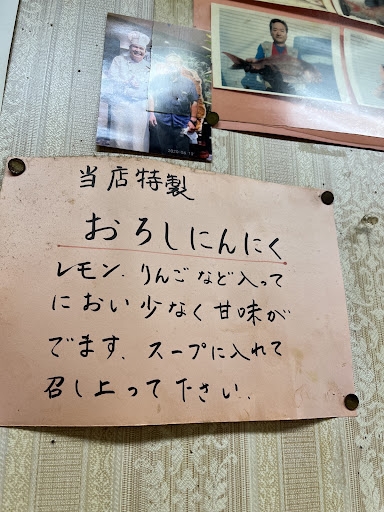 当店特製
おろしにんにく
レモン、りんごなど入って
におい少なく甘味が
でます、スープに入れて
召し上って下さい、